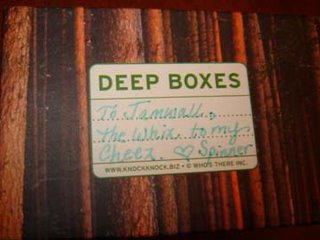 DEEP BOXES
To Jamwall,
the Whiz to my
Cheez. ♡ Spinner
WWW.KNOCKKNOCK.BIZ • © WHO'S THERE INC.